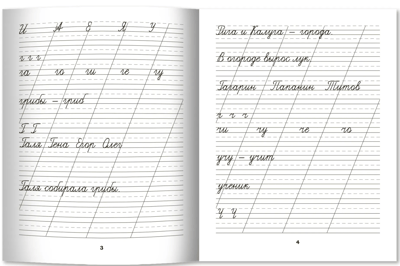 И А Е Я У
г г г
га го ги ге гу
грибы – гриб
Г Г
Галя Гена Егор Олег
Галя собирала грибы.
3
Рига и Калуга – города.
В огороде вырос лук.
Гагарин Папанин Титов
ч ч ч
чи чу че чо
учу – учит
ученик
Ч Ч
4